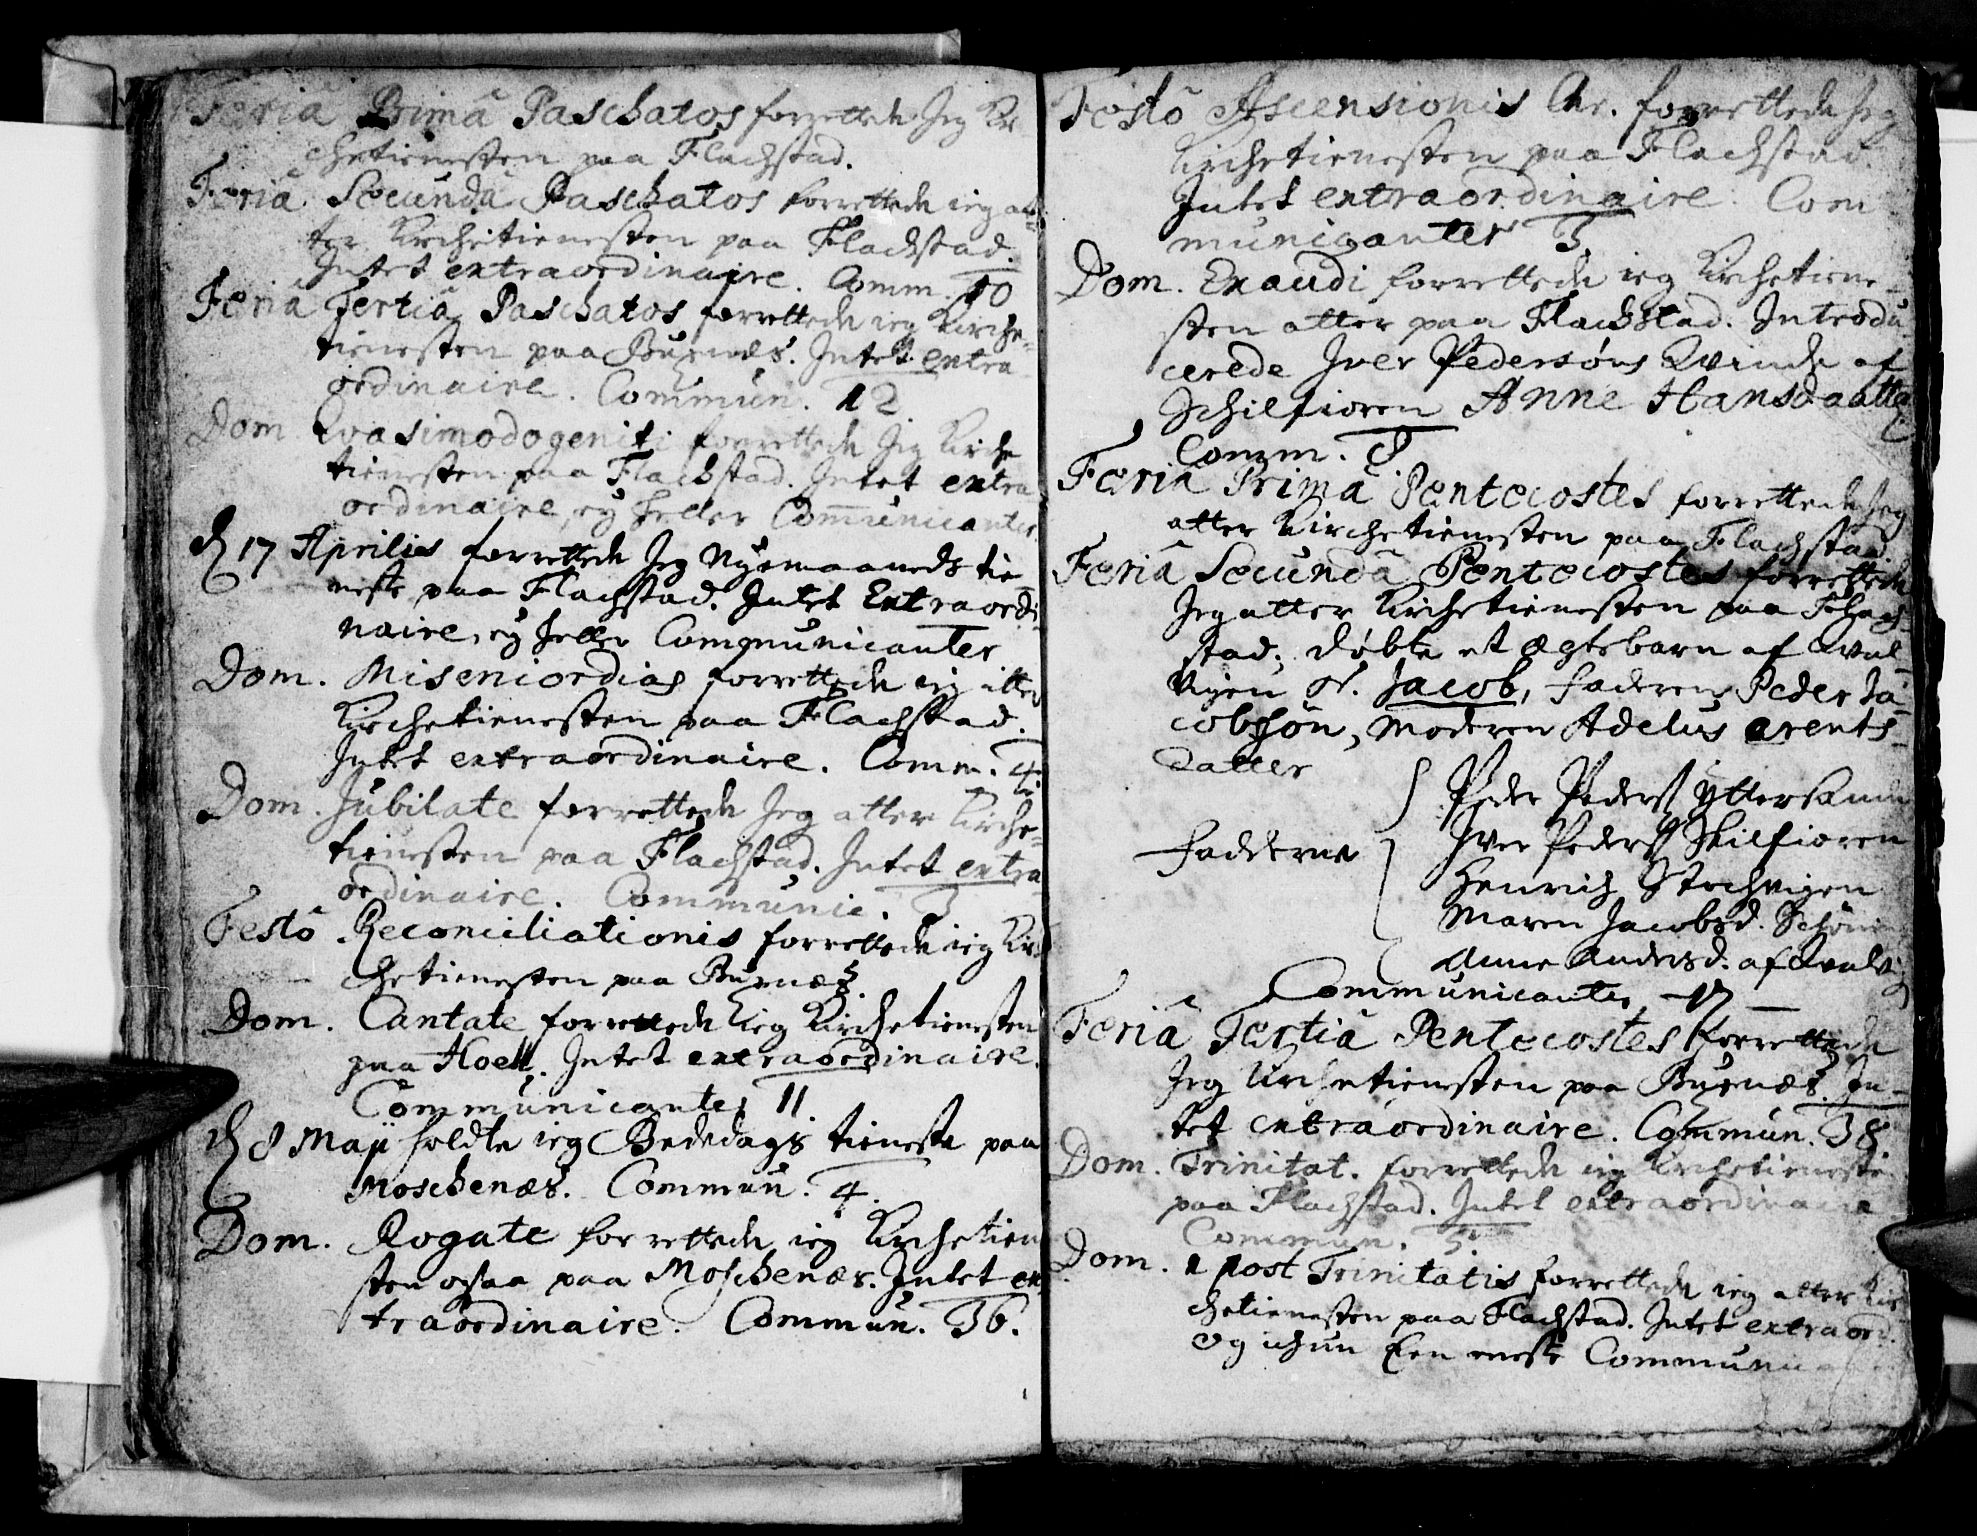 Feriâ Primâ Paschatos forrettede Jeg Kir
chetienesten paa Flachstad.
Feriâ Secundâ Paschatos forrettede ieg at-
ter Kirchetienesten paa Flachstad.
Intet extraordinaire. Comm. 10
Feriâ Tertiâ Paschatos forrettede ieg Kirche-
tienesten paa Buxnæs. Intet extra
ordinaire. Commun. 12
Dom. Qvasimodogeniti forrettede Jeg Kirche
tienesten paa Flachstad. Intet extra
ordinaire, ey heller Communicanter
d 17 Aprilis forrettede Jeg Nyemaaneds tie
neste paa Flachstad. Intet Extraordi-
naire, ey heller Communicanter
Dom. Misericordias forrettede ieg atter
Kirchetienesten paa Flachstad.
Intet extraordinaire. Comm. 4
Dom. Jubilate forrettede Jeg atter Kirche-
tienesten paa Flachstad. Intet extra
ordinaire. Communic. 3
Festô Reconciliationis forrettede ieg Kir
chetienesten paa Buxnæs
Dom. Cantate forrettede ieg Kirchetienesten
paa Hoell. Intet extraordinaire.
Communicanter 11
d 8 Maji holdte ieg Bededags tieneste paa
Moschenæs. Commun. 4.
Dom. Rogate forrettede ieg Kirchetien
sten ogsaa paa Moschenæs. Intet ex
traordinaire. Commun. 36.
Festô Ascensionis Chr. forrettede Jeg
Kirchetienesten paa Flachstad.
Intet extraordinaire. Com
municanter 3
Dom. Exaudi forrettede ieg Kirchetiene-
sten atter paa Flachstad. Introdu-
cerede Iver Pedersøns Kvinde af
Schilfioren Anne Hansdaatter
Comm. 8
Feriâ Primâ Pentecostes forrettede Jeg
atter Kirchetienesten paa Flachstad
Feriâ Secundâ Pentecostes forrettede
Jeg atter Kirchetienesten paa Flach-
stad. døbte et Ægtebarn af Qval-
viigen N. Jacob, faderen Peder Ja-
cobsøn, Moderen Adelus Arents-
datter
Peder Peders Yttersande
Iver Peders Skilfioren
Fadderne
Henrich Stochvigen
Maren Jacobsd. Schønin
Anne Andersd. af Qvalvi
Communicanter 17
Feriâ Tertiâ Pentecostes forrettede
Jeg Kirchetienesten paa Buxnæs. In-
tet extraordinaire. Commun. 38
Dom. Trinitat. forrettede ieg Kirchetieneste
paa Flachstad. Intet extraordinaire
Commun. 5
Dom. 1 post Trinitatis forrettede ieg atter Kir
chetienesten paa Flachstad. Intet extraord.
og ichun Een eneste Communic